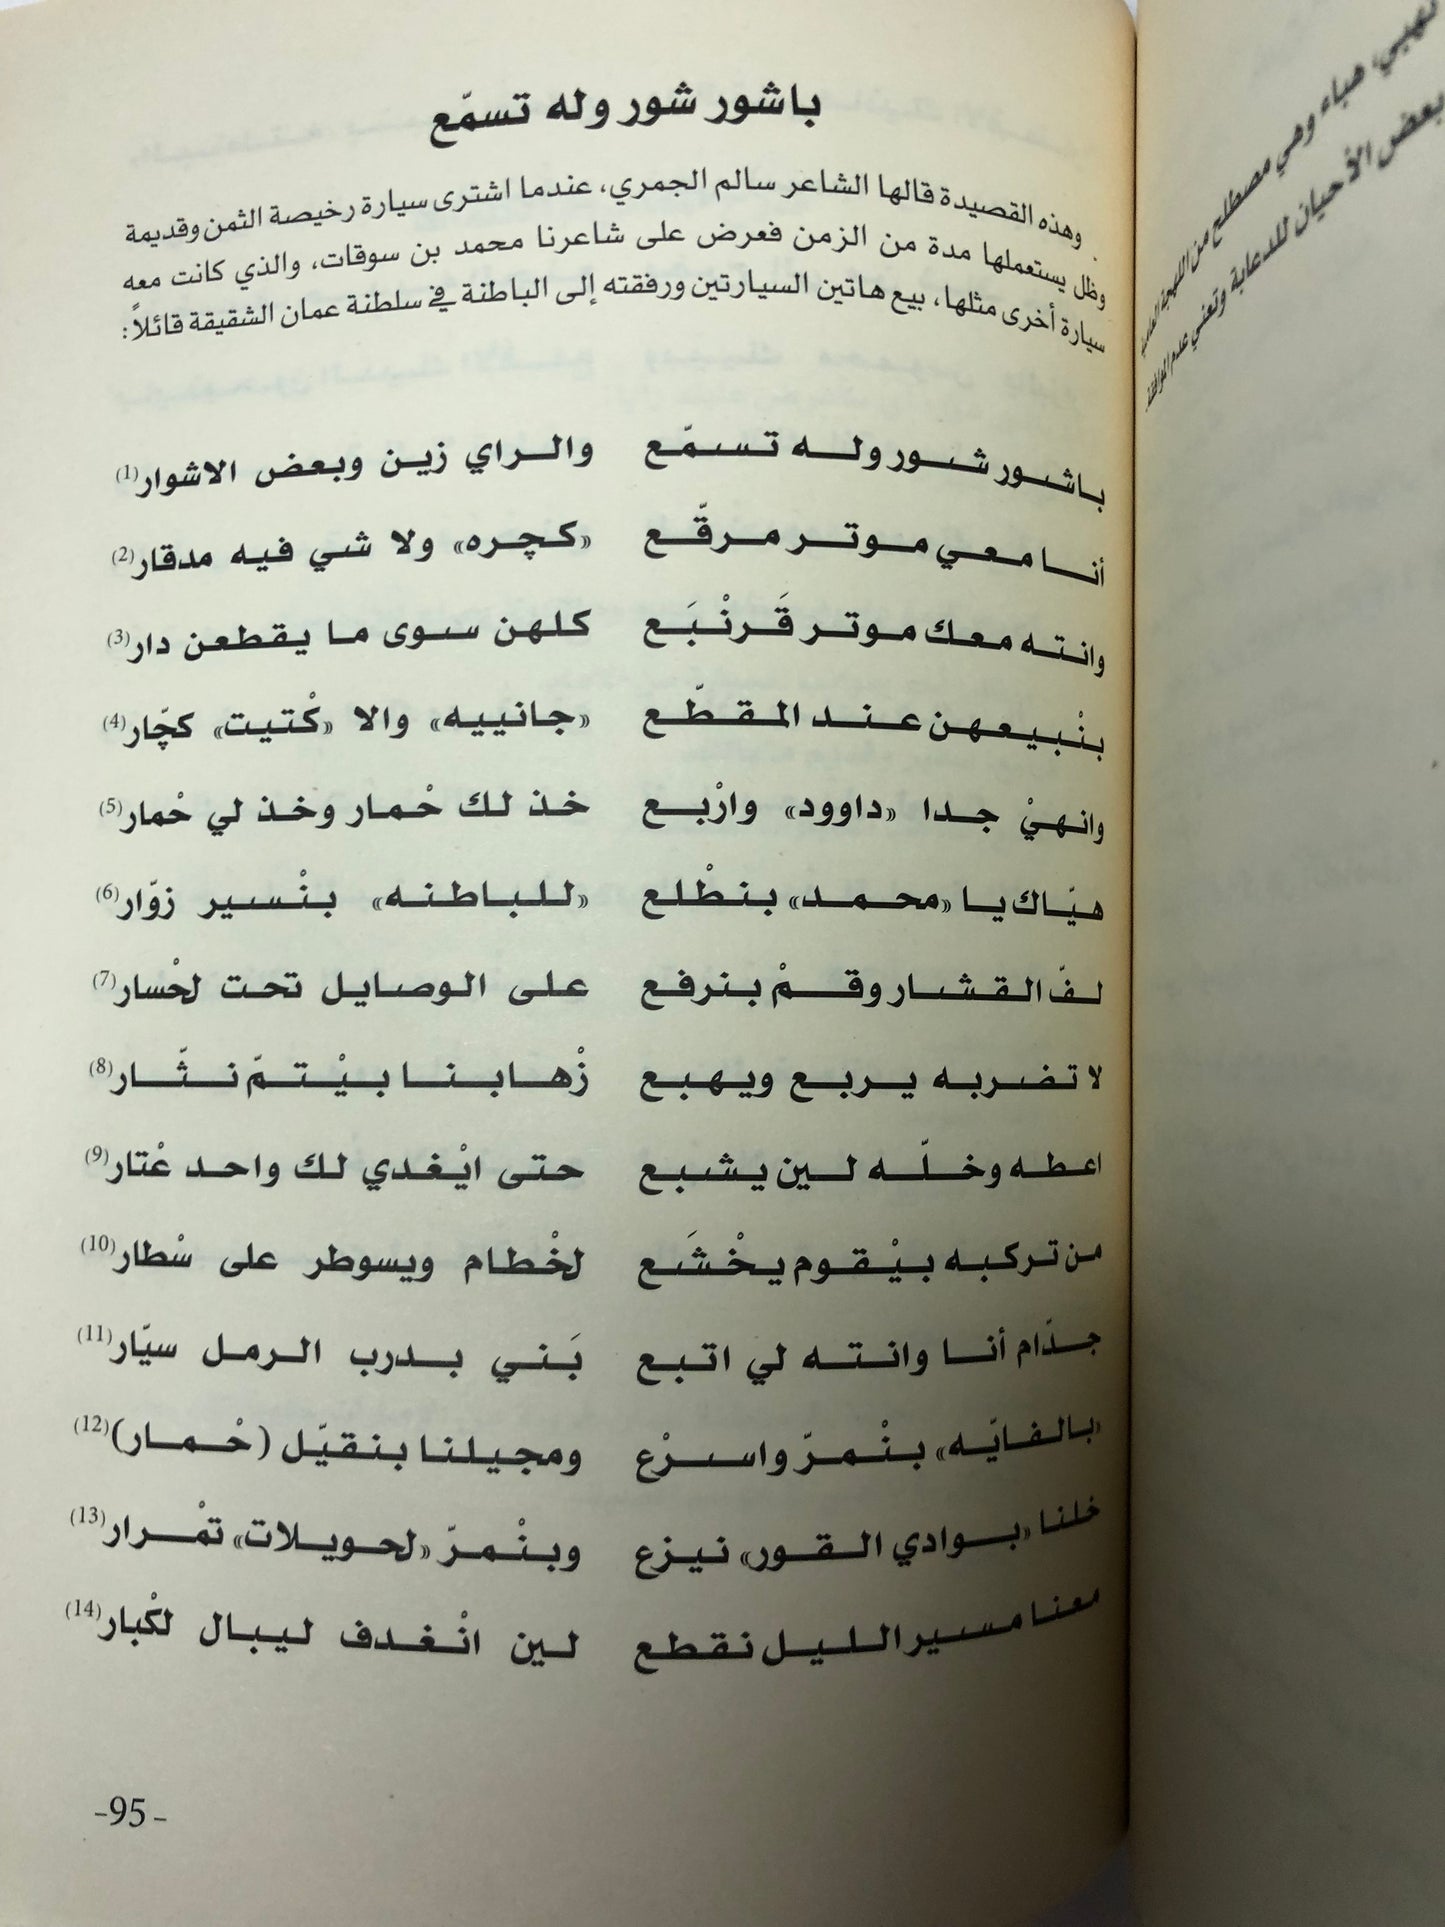 باشور شور وله تسمّع
وهذه القصيدة قالها الشاعر سالم الجمري، عندما اشترى سيارة رخيصة الثمن وقديمة
وظل يستعملها مدة من الزمن فعرض على شاعرنا محمد بن سوقات، والذي كانت معه
سيارة أخرى مثلها، بيع هاتين السيارتين ورفقته إلى الباطنة في سلطنة عمان الشقيقة قائلاً:
باشور شور وله تسمّع والراي زين وبعض الاشوار(1)
أنا معي موتر مرقّع «كچره» ولا شي فيه مدقار(2)
وانته معك موتر قَرنْبَع كلهن سوى ما يقطعن دار(3)
بنْبيعهن عند المقطّع «جانييه» والا «كْتيت» كچّار(4)
وانهيْ جدا «داوود» وارْبع خذ لك حْمار وخذ لي حْمار(5)
هيّاك يا «محمد» بنطْلع «للباطنه» بنْسير زوّار(6)
لفّ القشار وقمْ بنرفع على الوصايل تحت لحْسار(7)
لا تضربه يربع ويهبع زْهابنا بيْتمّ نثّار(8)
اعطه وخلّه لين يشبع حتى ايْغدي لك واحد عْتار(9)
من تركبه بيْقوم يخْشَع لخْطام ويسوطر على سْطار(10)
جدّام أنا وانته لي اتبع بَني بدرب الرمل سيّار(11)
«بالفايّه» بنْمرّ واسرْع ومجيلنا بنقيّل (حْمار)(12)
خلنا «بوادي القور» نيزع وبنْمرّ «لحويلات» تمْرار(13)
معنا مسير الليل نقطع لين انْغدف ليبال لكْبار(14)
-95-
نهبي، هباء وهي مصطلح من اللهجة
بعض الأحيان للدعابة وتعني عدم